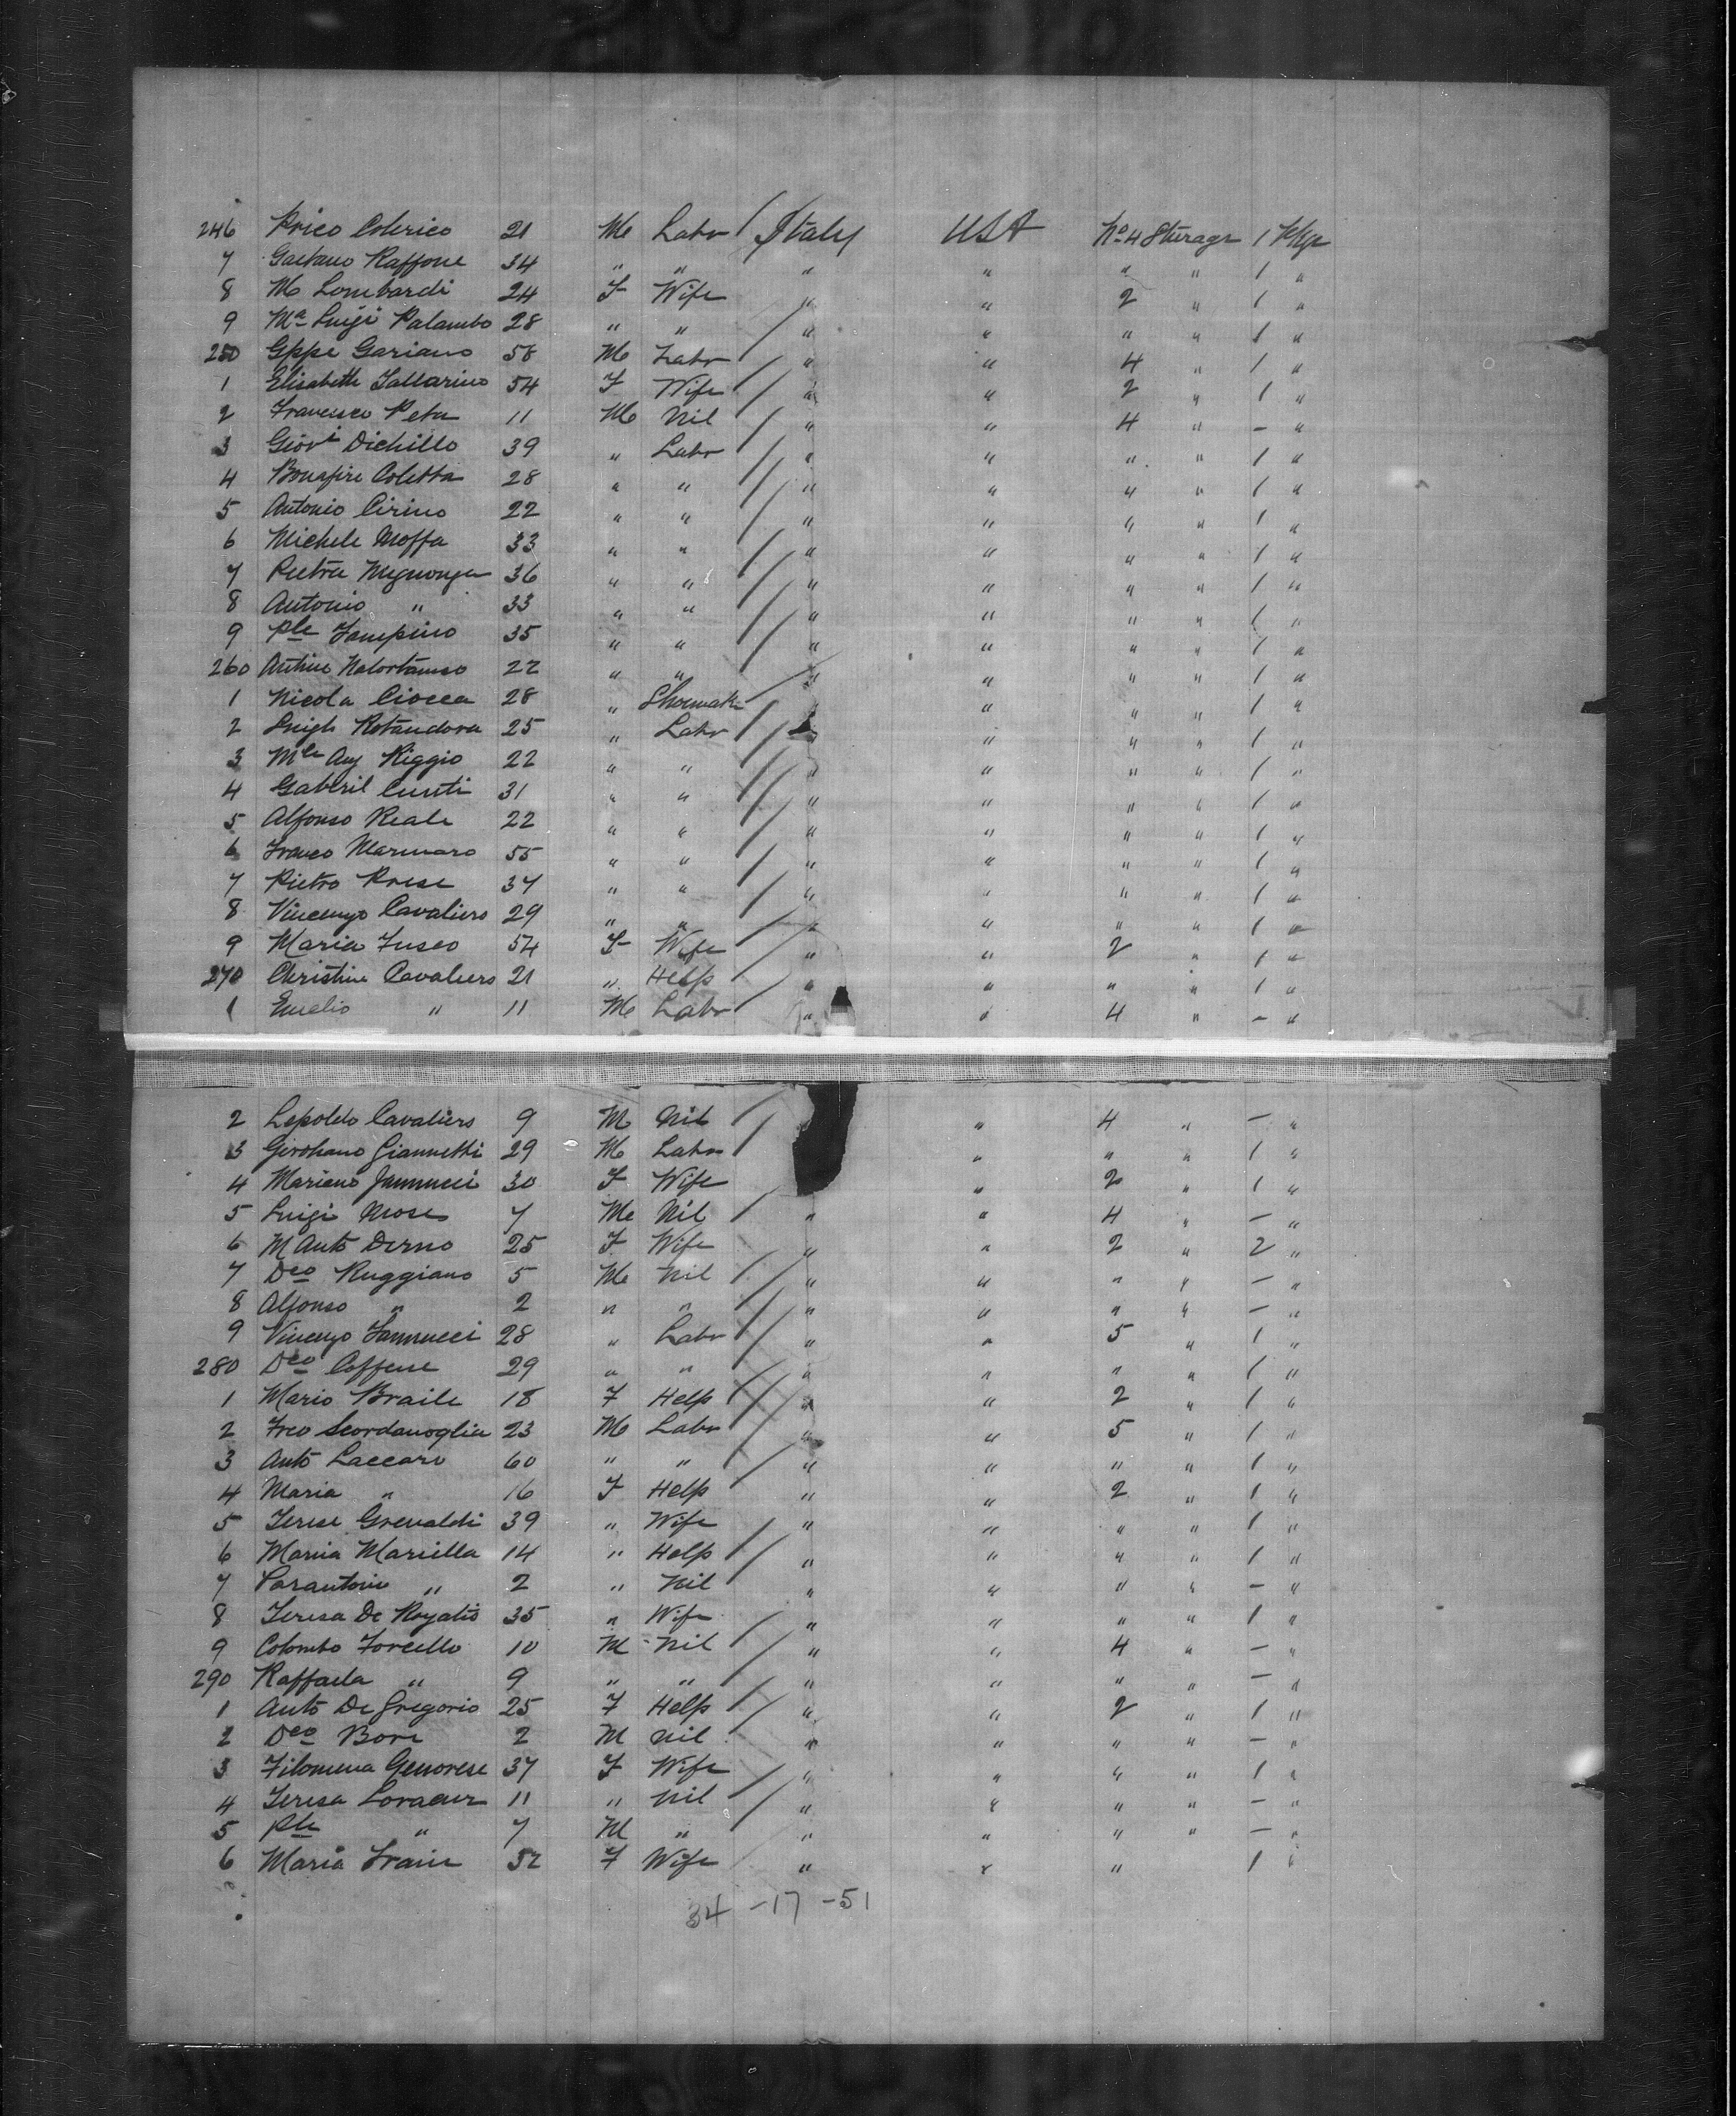 246 Prico Colerico 21 M Labr Italy USA No 4 Sturage 1 Pkge
7 Gaetano Raffone 34 " " " " " " 1 "
8 M Lombardi 24 F Wife " " 2 " 1 "
9 Ma Luigi Palambo 28 " " " " " " 1 "
250 Gppe Gariano 58 M Labr " " 4 " 1 "
1 Elisabetta Tallarino 54 F Wife " " 2 " 1 "
2 Francisco Peta 11 M Nil " " 4 " - "
3 Giovi Dichillo 39 " Labr " " " " 1 "
4 Bonafire Coletta 28 " " " " " " 1 "
5 Antonio Cirino 22 " " " " " " 1 "
6 Michele Moffa 33 " " " " " " 1 "
7 Pietra Mignonga 36 " " " " " " 1 "
8 Antonio " 33 " " " " " " 1 "
9 Ple Iampino 35 " " " " " " 1 "
260 22 " " " " " " 1 "
1 Nicola Ciocca 28 " Shoemak " " " " 1 "
2 Luigh Rotandora 25 " Labr " " " " 1 "
3 Mle Ang Riggio 22 " " " " " " 1 "
4 Gabriil Cunti 31 " " " " " " 1 "
5 Alfonso Reale 22 " " " " " " 1 "
6 Franco Marinaro 55 " " " " " " 1 "
7 Pietro Prese 37 " " " " " " 1 "
8 Vincenzo Cavaliero 29 " " " " " " 1 "
9 Maria Fusco 54 F Wife " " 2 " 1 "
270 Christine Cavaliero 21 " Help " " " " 1 "
1 Emelio " 11 M Labr " " 4 " - "
2 Lepoldo Cavaliero 9 M Nil " 4 " - "
3 Giannetti 29 M Labr " " " 1 "
4 Mariano Jannucci 30 F Wife " 2 " 1 "
5 Luigi Mose 7 M Nil " " 4 " - "
6 M Anto Derno 25 F Wife " " 2 " 2 "
7 Dco Ruggiano 5 M Nil " " " " - "
8 Alfonso " 2 " " " " " " - "
9 Vincenzo Iannucci 28 " Labr " " 5 " 1 "
280 Dco Coffene 29 " " " " " " 1 "
1 Mario Braile 18 F Help " " 2 " 1 "
2 Frco Scordamoglia 23 M Labr " " 5 " 1 "
3 Anto Laccaro 60 " " " " " " 1 "
4 Maria " 16 F Help " " 2 " 1 "
5 Terese Grenaldi 39 " Wife " " " " 1 "
6 Maria Mariella 14 " Help " " " " 1 "
7 " 2 " Nil " " " " - "
8 Teresa De Royatis 35 " Wife " " " " 1 "
9 Colombo Forcello 10 M Nil " " 4 " - "
290 Raffaela " 9 " " " " " " - "
1 Anto De Gregorio 25 F Help " " 2 " 1 "
2 Dco Bore 2 M Nil " " " " - "
3 Filomena Genovese 37 F Wife " " " " 1 "
4 Teresa 11 " Nil " " " " - "
5 Ple " 7 M " " " " " - "
6 Maria 52 F Wife " " " 1 "
34 -17 -51